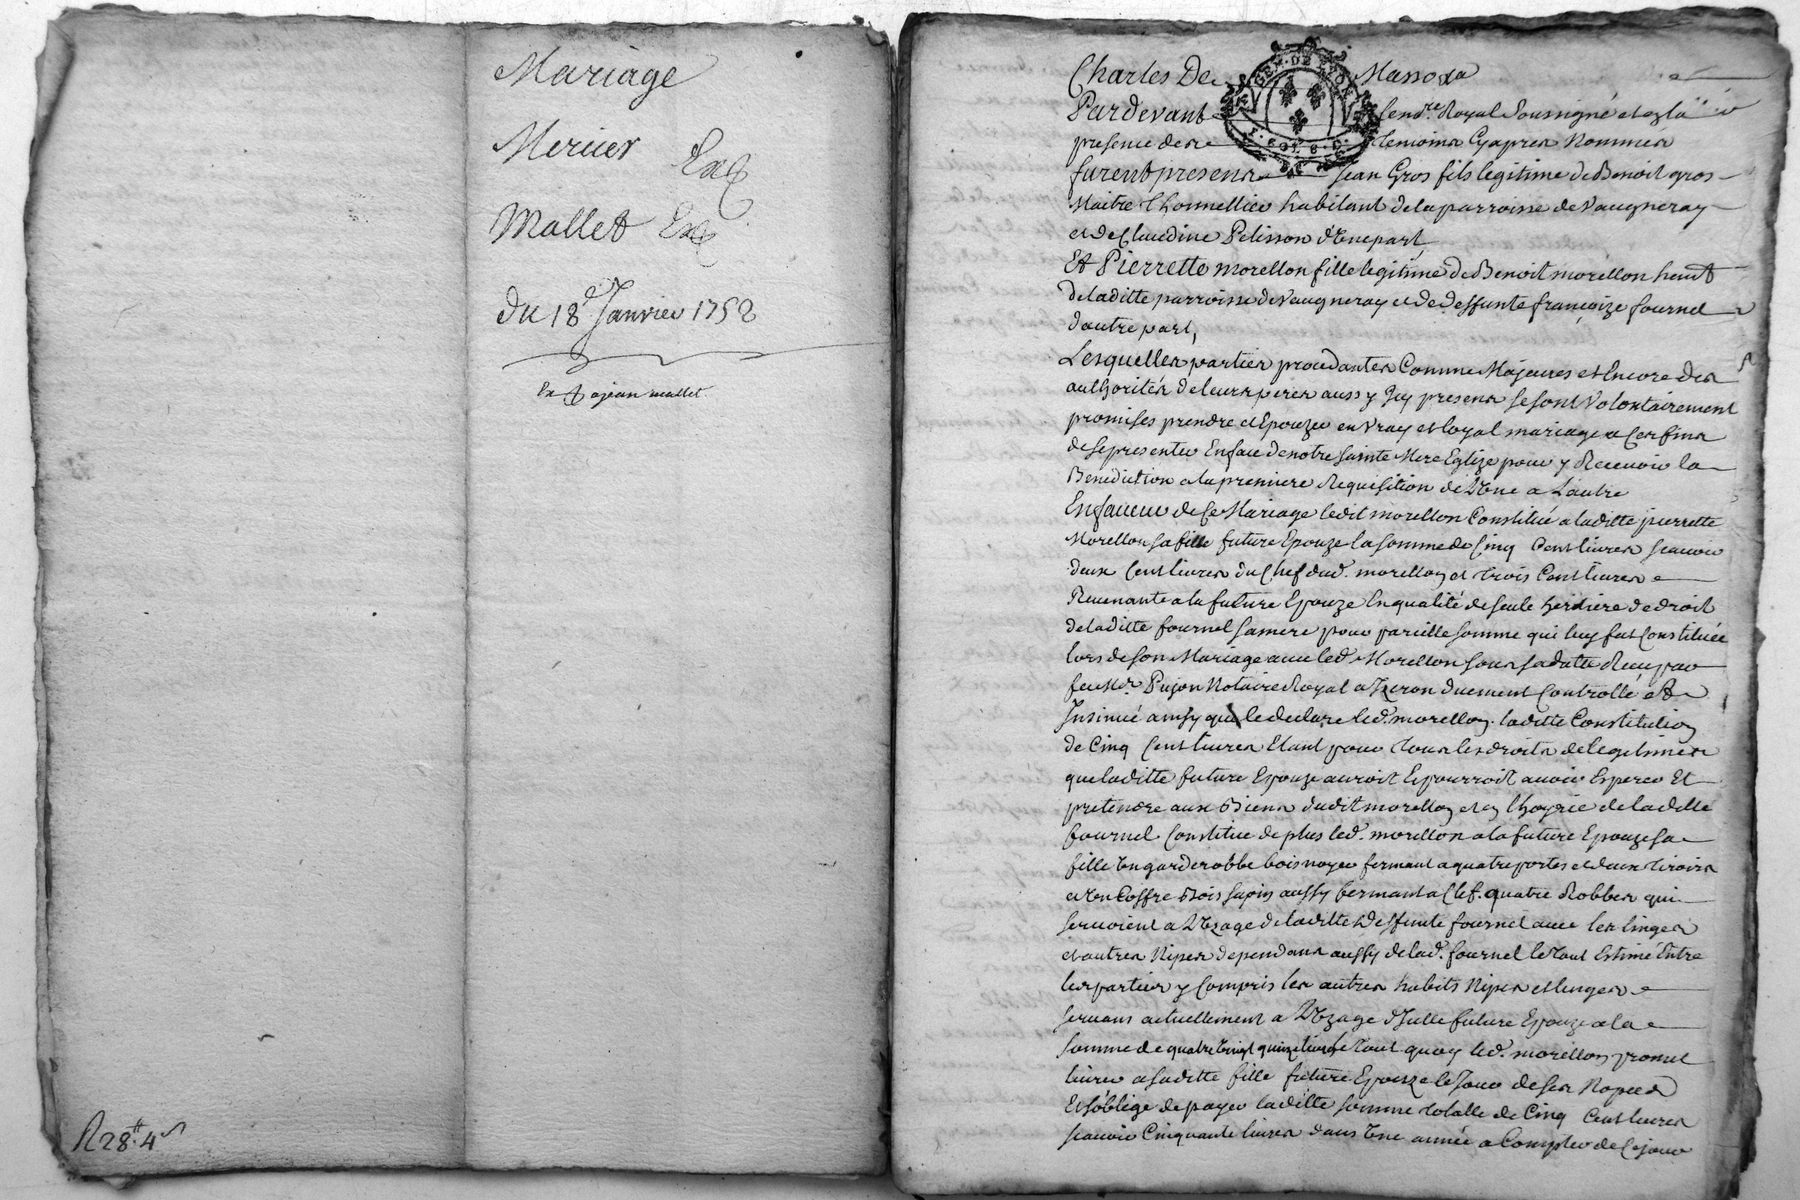 Mariage
Mercier Exp
Mallet Exp
du 18e Janvier 1752
Exp a jean mallet
R 28tt 4s
Charles De Masso &a
GEN. DE LYON
Pardevant Royal soussigné et en la
presence de temoins Cyapres Nommés
furent presens Jean Gros fils legitime de Benoit gros
Maitre thonnellier habitant de la parroisse de Vaugneray
et de Claudine Pelisson d'Une part
Et Pierrette morellon fille legitime de Benoit morellon
de laditte parroisse de Vaugneray et de deffunte françoize fournel
d'autre part,
Lesquelles parties procedantes Comme Majeures et Encore des
authorités de leurs peres aussy Icy presens se sont Volontairement
promises prendre et Epouzer en Vray et loyal mariage a Ces fins
de se presenter En face de notre sainte Mere Eglize pour y Recevoir la
Benediction a la premiere Requisition de L'Une a L'autre
En faveur de Ce Mariage ledit morellon Constitue a laditte pierrette
Morellon sa fille future Epouze la somme de Cinq Cent livres scavoir
deux Cent livres du Chef dud. morellon et trois Cent livres
Revenante a la future Epouze En qualité de seule heritiere de droit
de laditte fournel sa mere pour pareille somme qui luy fut Constituée
lors de son Mariage avec led. Morellon sous sa datte Reçu par
feu Mr. Pujon Notaire Royal a Izeron duement Controllé et
Insinué ainsy que le declare led. morellon. laditte Constitution
de Cinq Cent livres Etant pour tous les droits de legitimes
que laditte future Epouze auroit Et pourroit avoir Esperer Et
pretendre aux Biens dudit morellon et en l'hoyrie de laditte
fournel Constitue de plus led. morellon a la future Epouze sa
fille Un garderobbe bois noyer fermant a quatre portes et deux tiroirs
et Un Coffre Bois sapin aussy fermant a Clef. quatre Robbes qui
servoient a L'Uzage de laditte Deffunte fournel avec les linges
et autres Nipes dependans aussy de lad. fournel le tout Estimé Entre
les parties y Compris les autres habits Nipes et linges
servans actuellement a L'Uzage d'Icelle future Epouze a la
somme de quatre vingt quinze livres le tout quoy led. morellon promet
livrer a saditte fille future Epouze le Jour de ses Nopces
Et s'oblige de payer laditte somme totalle de Cinq Cent livres
scavoir Cinquante livres dans Une année a Compter de Ce jour